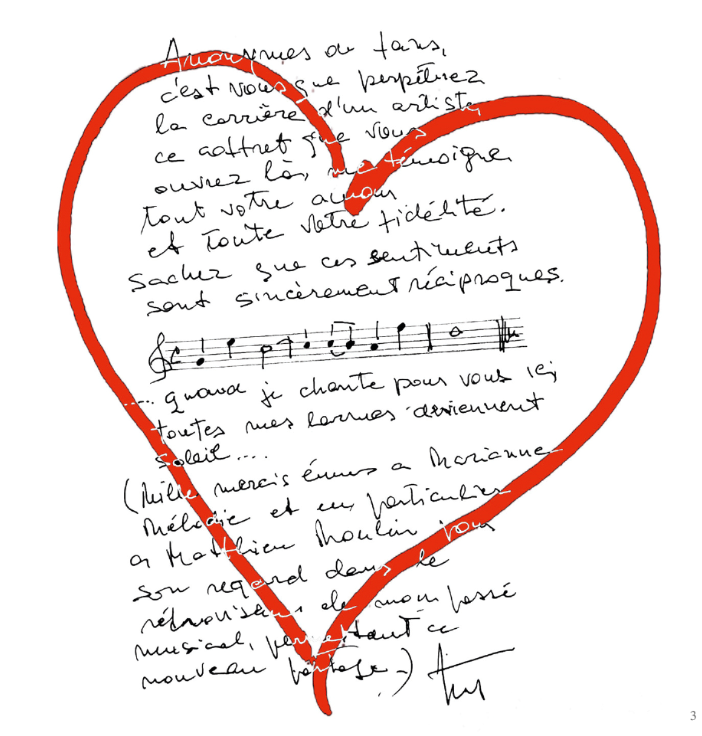 Anonymes ou fans,
c'est vous qui perpétuez
la carrière d'un artiste,
ce coffret que vous
ouvrez là, me témoigne
tout votre amour
et toute votre fidélité.
Sachez que ces sentiments
sont sincèrement réciproques.
.... quand je chante pour vous ici,
toutes mes larmes deviennent
soleil ....
(Mille mercis émus a Marianne
Mélodie et en particulier
a Matthieu Moulin pour
son regard dans le
rétroviseur de mon passé
musical, permettant ce
nouveau partage.)
3